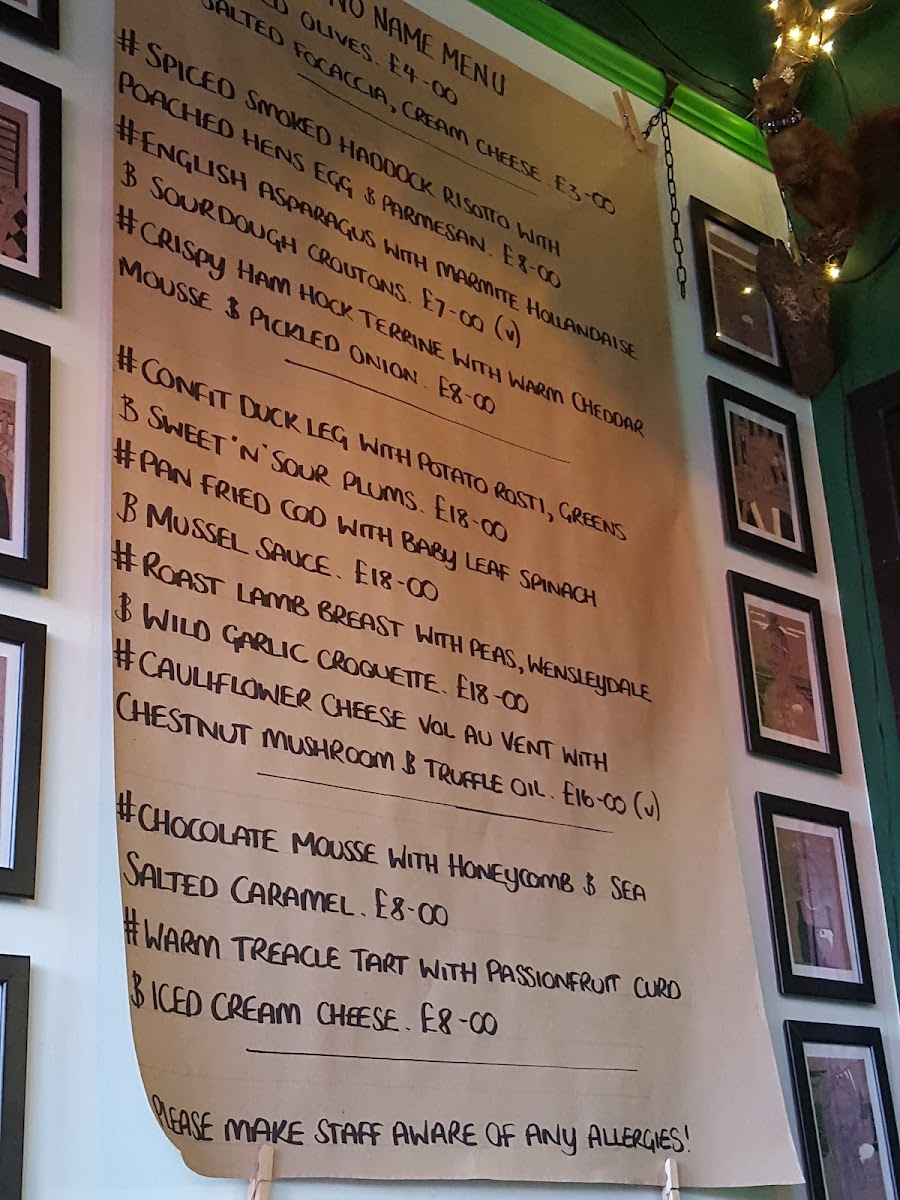 NO NAME MENU
OLIVES. £4-00
SALTED FOCACCIA, CREAM CHEESE. £3-00
# SPICED SMOKED HADDOCK RISOTTO WITH
POACHED HENS EGG & PARMESAN. £8-00
# ENGLISH ASPARAGUS WITH MARMITE HOLLANDAISE
& SOURDOUGH CROUTONS. £7-00 (v)
# CRISPY HAM HOCK TERRINE WITH WARM CHEDDAR
MOUSSE & PICKLED ONION. £8-00
# CONFIT DUCK LEG WITH POTATO ROSTI, GREENS
& SWEET 'N' SOUR PLUMS. £18-00
# PAN FRIED COD WITH BABY LEAF SPINACH
& MUSSEL SAUCE. £18-00
# ROAST LAMB BREAST WITH PEAS, WENSLEYDALE
& WILD GARLIC CROQUETTE. £18-00
# CAULIFLOWER CHEESE VOL AU VENT WITH
CHESTNUT MUSHROOM & TRUFFLE OIL. £16-00 (v)
# CHOCOLATE MOUSSE WITH HONEYCOMB & SEA
SALTED CARAMEL. £8-00
# WARM TREACLE TART WITH PASSIONFRUIT CURD
& ICED CREAM CHEESE. £8-00
PLEASE MAKE STAFF AWARE OF ANY ALLERGIES!